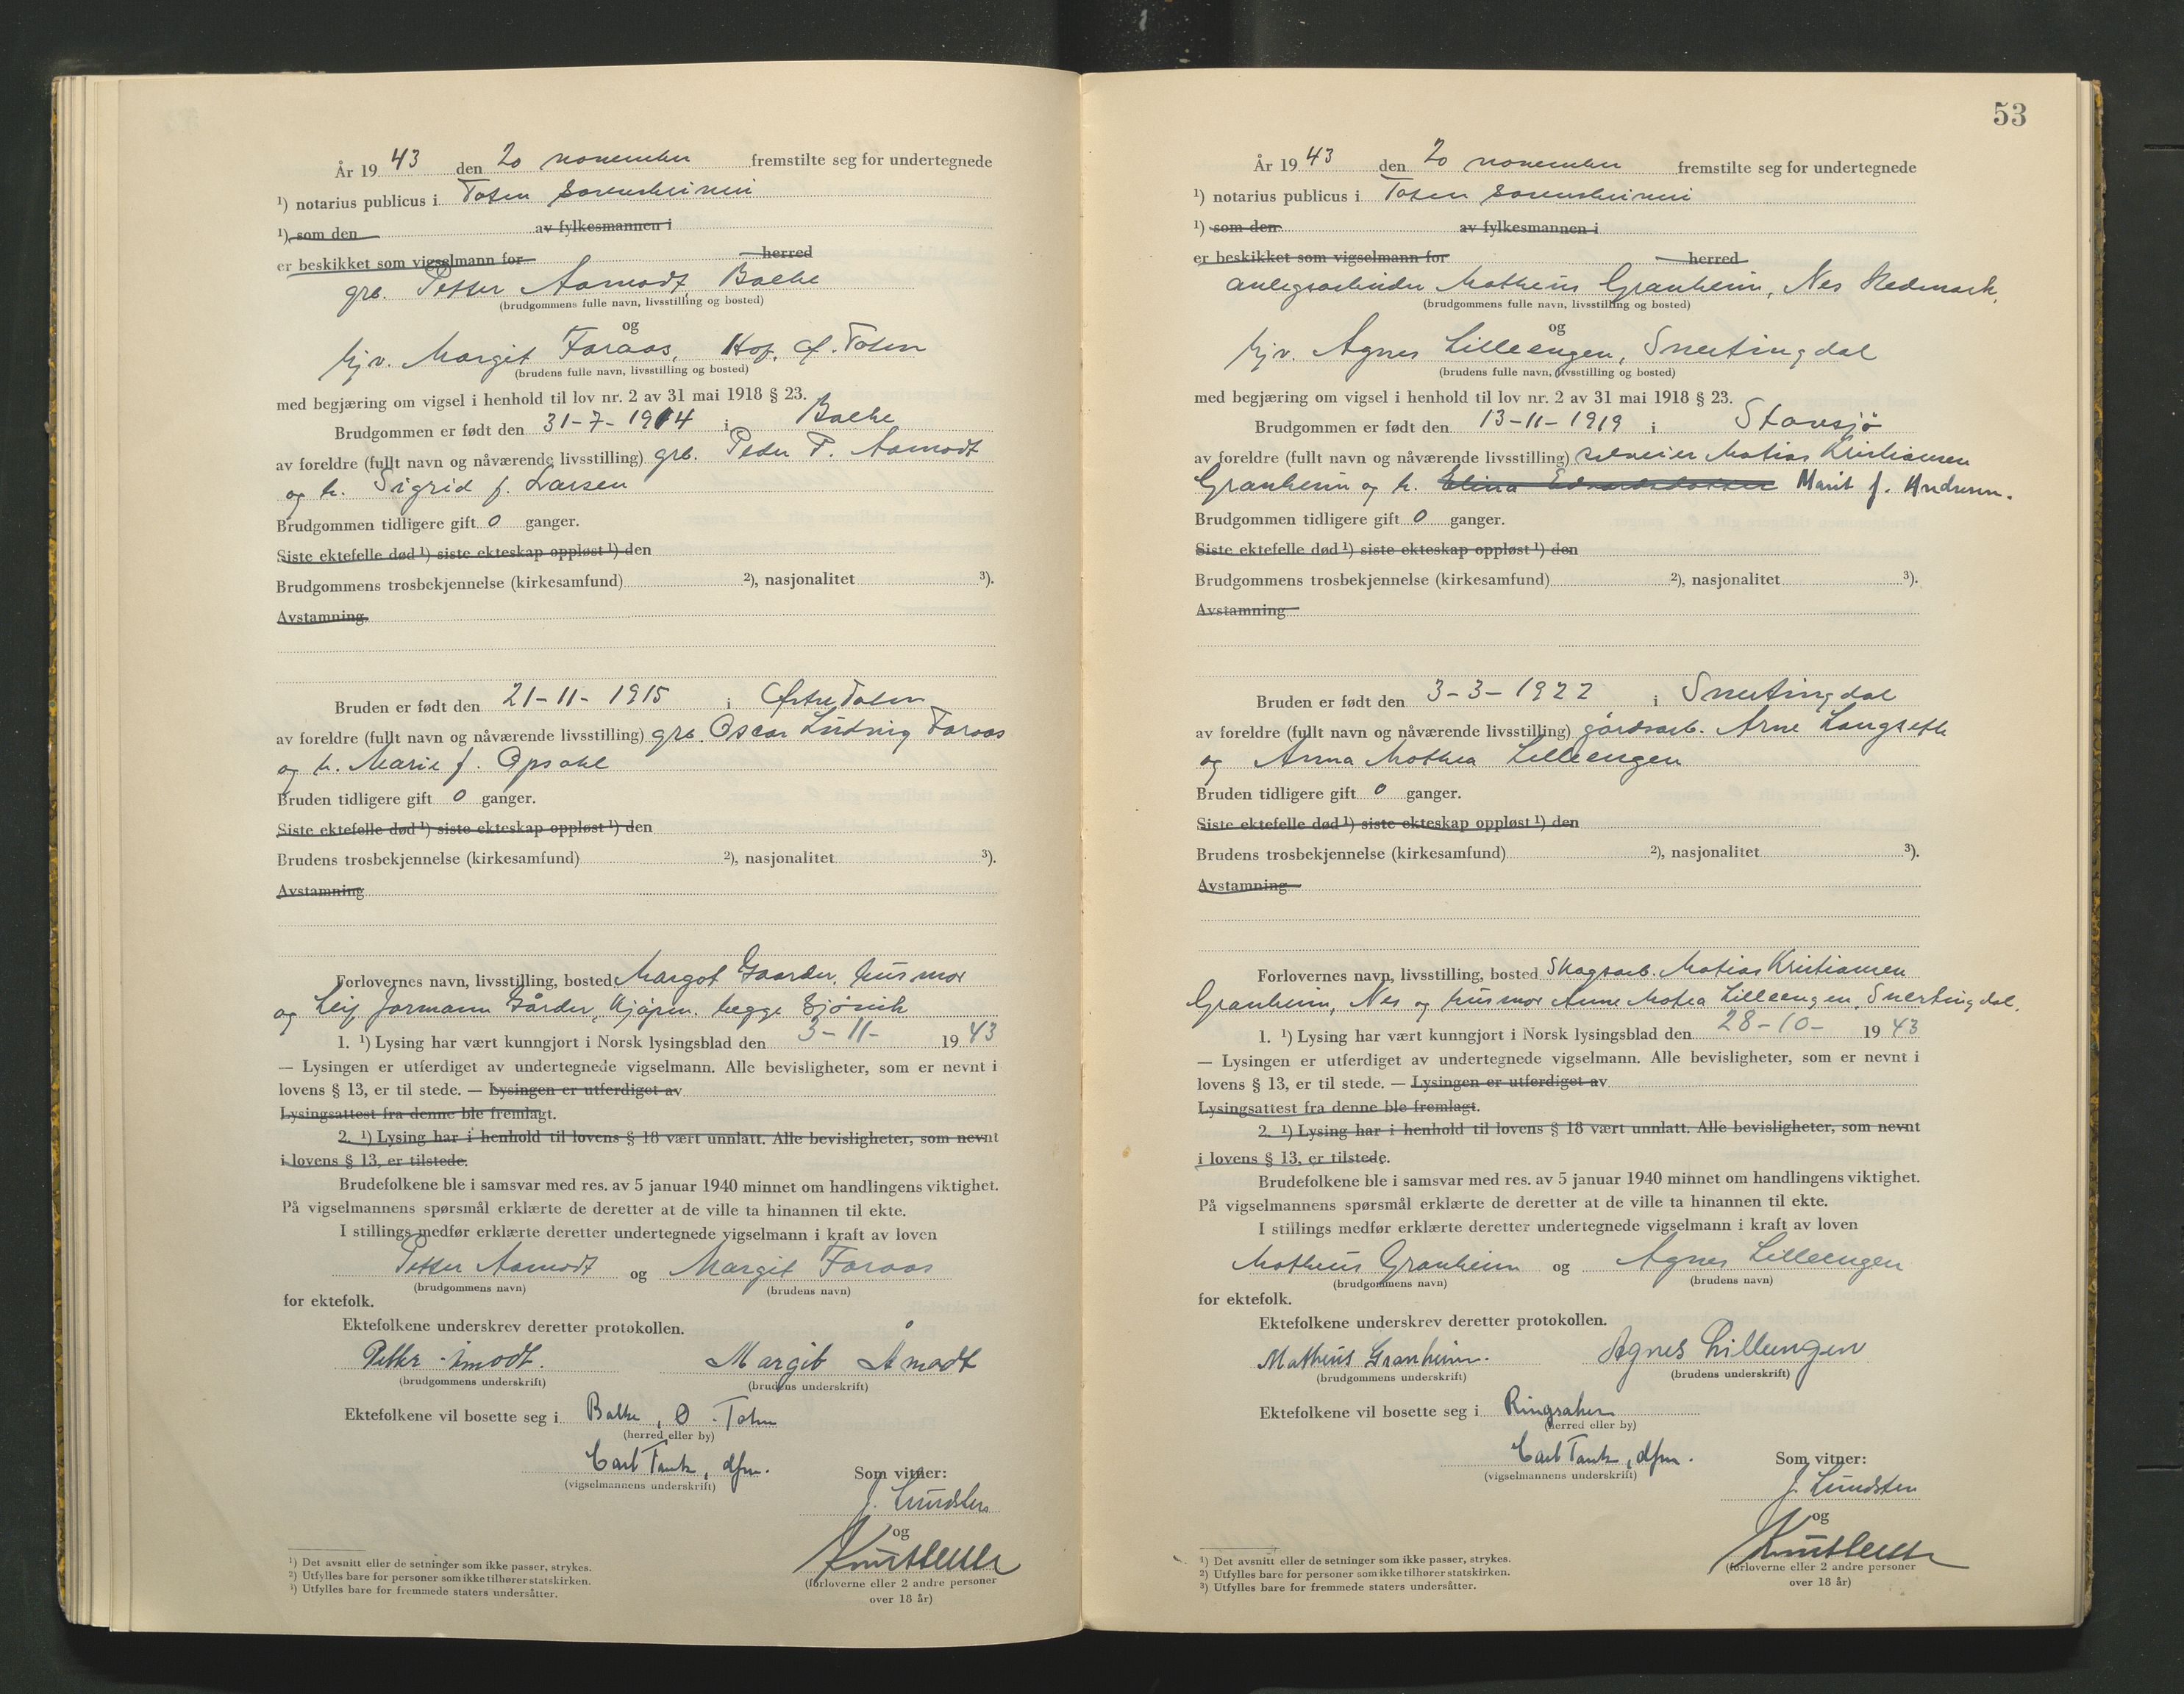 År 19 43 den 20 november fremstilte seg for undertegnede
¹) notarius publicus i Toten sorenskriveri
¹) som den av fylkesmannen i
er beskikket som vigselmann for herred
grb. Petter Aamodt, Balke
(brudgommens fulle navn, livsstilling og bosted)
og
hj.v. Margit Faraas, Hof, Ø. Toten
(brudens fulle navn, livsstilling og bosted)
med begjæring om vigsel i henhold til lov nr. 2 av 31 mai 1918 § 23.
Brudgommen er født den 31-7-1914 i Balke
av foreldre (fullt navn og nåværende livsstilling) grb. Peder P. Aamodt
og h. Sigrid f. Larsen
Brudgommen tidligere gift 0 ganger.
Siste ektefelle død ¹) siste ekteskap oppløst ¹) den
Brudgommens trosbekjennelse (kirkesamfund) ²), nasjonalitet ³).
Avstamning
Bruden er født den 21-11-1915 i Østre Toten
av foreldre (fullt navn og nåværende livsstilling) grb. Oscar Ludvig Faraas
og h. Marie f. Opsahl
Bruden tidligere gift 0 ganger.
Siste ektefelle død ¹) siste ekteskap oppløst ¹) den
Brudens trosbekjennelse (kirkesamfund) ²), nasjonalitet ³).
Avstamning
Forlovernes navn, livsstilling, bosted Margot Gaarder, husmor
og Leif Jormann Gårder, kjøpm. begge Gjövik
1. ¹) Lysing har vært kunngjort i Norsk lysingsblad den 3-11- 19 43
— Lysingen er utferdiget av undertegnede vigselmann. Alle bevisligheter, som er nevnt i
lovens § 13, er til stede. — Lysingen er utferdiget av
Lysingsattest fra denne ble fremlagt.
2. ¹) Lysing har i henhold til lovens § 18 vært unnlatt. Alle bevisligheter, som nevnt
i lovens § 13, er tilstede.
Brudefolkene ble i samsvar med res. av 5 januar 1940 minnet om handlingens viktighet.
På vigselmannens spørsmål erklærte de deretter at de ville ta hinannen til ekte.
I stillings medfør erklærte deretter undertegnede vigselmann i kraft av loven
Petter Aamodt og Margit Faraas
(brudgommens navn) (brudens navn)
for ektefolk.
Ektefolkene underskrev deretter protokollen.
Petter Åmodt. Margit Åmodt
(brudgommens underskrift) (brudens underskrift)
Ektefolkene vil bosette seg i Balke, Ø. Toten
(herred eller by)
Carl Tank, dfm.
(vigselmannens underskrift)
Som vitner:
J. Lundsten
og
(forloverne eller 2 andre personer
over 18 år)
¹) Det avsnitt eller de setninger som ikke passer, strykes.
²) Utfylles bare for personer som ikke tilhører statskirken.
³) Utfylles bare for fremmede staters undersåtter.
53
År 19 43 den 20 november fremstilte seg for undertegnede
¹) notarius publicus i Toten sorenskriveri
¹) som den av fylkesmannen i
er beskikket som vigselmann for herred
anlegsarbeider Matheus Granheim, Nes Hedmark.
(brudgommens fulle navn, livsstilling og bosted)
og
hj.v. Agnes Lilleengen, Snertingdal
(brudens fulle navn, livsstilling og bosted)
med begjæring om vigsel i henhold til lov nr. 2 av 31 mai 1918 § 23.
Brudgommen er født den 13-11-1919 i Stavsjö
av foreldre (fullt navn og nåværende livsstilling) selveier Matias Kristiansen
Granheim og h. Elina Edvardsdatter Marit f. Andersen.
Brudgommen tidligere gift 0 ganger.
Siste ektefelle død ¹) siste ekteskap oppløst ¹) den
Brudgommens trosbekjennelse (kirkesamfund) ²), nasjonalitet ³).
Avstamning
Bruden er født den 3-3-1922 i Snertingdal
av foreldre (fullt navn og nåværende livsstilling) gårdsarb. Arne Langseth
og Anna Mathea Lilleengen
Bruden tidligere gift 0 ganger.
Siste ektefelle død ¹) siste ekteskap oppløst ¹) den
Brudens trosbekjennelse (kirkesamfund) ²), nasjonalitet ³).
Avstamning
Forlovernes navn, livsstilling, bosted Skogsarb. Matias Kristiansen
Granheim, Nes og husmor Anne Matea Lilleengen, Snertingdal.
1. ¹) Lysing har vært kunngjort i Norsk lysingsblad den 28-10- 19 43
— Lysingen er utferdiget av undertegnede vigselmann. Alle bevisligheter, som er nevnt i
lovens § 13, er til stede. — Lysingen er utferdiget av
Lysingsattest fra denne ble fremlagt.
2. ¹) Lysing har i henhold til lovens § 18 vært unnlatt. Alle bevisligheter, som nevnt
i lovens § 13, er tilstede.
Brudefolkene ble i samsvar med res. av 5 januar 1940 minnet om handlingens viktighet.
På vigselmannens spørsmål erklærte de deretter at de ville ta hinannen til ekte.
I stillings medfør erklærte deretter undertegnede vigselmann i kraft av loven
Matheus Granheim og Agnes Lilleengen
(brudgommens navn) (brudens navn)
for ektefolk.
Ektefolkene underskrev deretter protokollen.
Matheus Granheim. Agnes Lilleengen
(brudgommens underskrift) (brudens underskrift)
Ektefolkene vil bosette seg i Ringsaker
(herred eller by)
Carl Tank, dfm.
(vigselmannens underskrift)
Som vitner:
J. Lundsten
og
(forloverne eller 2 andre personer
over 18 år)
¹) Det avsnitt eller de setninger som ikke passer, strykes.
²) Utfylles bare for personer som ikke tilhører statskirken.
³) Utfylles bare for fremmede staters undersåtter.